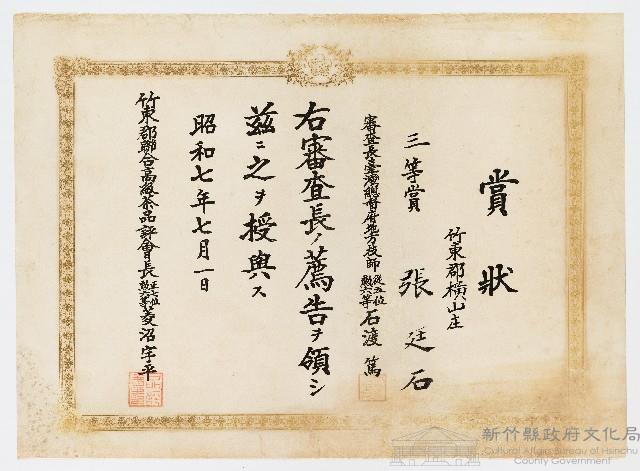 賞狀
竹東郡橫山庄
三等賞 張廷石
審查長臺灣總督府地方技師 從六位勲六等 石渡篤
右審查長ノ薦告ヲ領シ
茲ニ之ヲ授與ス
昭和七年七月一日
竹東郡聯合高級茶品評會長 正七位勲六等 菱沼宇平
新竹縣政府文化局
Cultural Affairs Bureau of Hsinchu
County Government